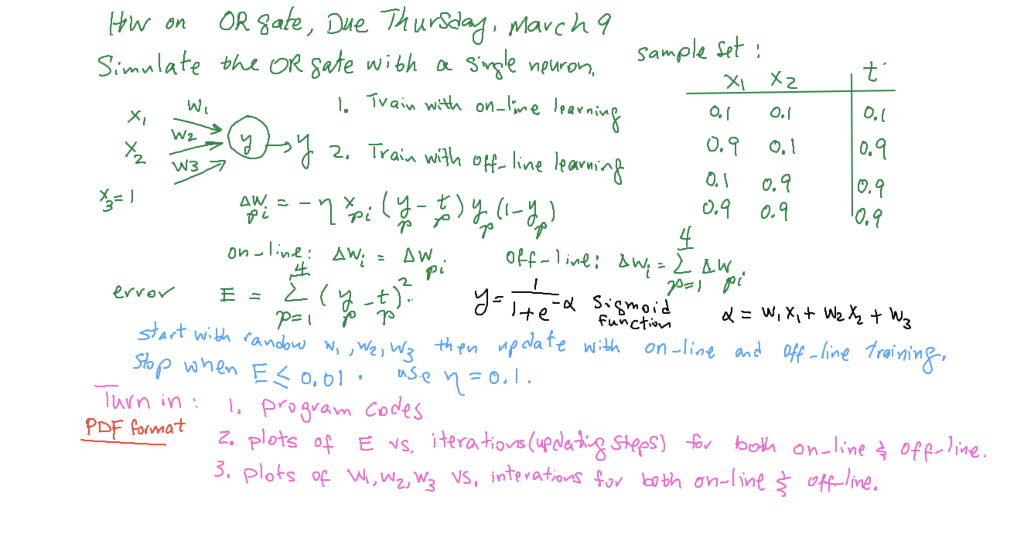 HW on OR gate, Due Thursday, March 9
Simulate the OR gate with a single neuron,
sample set :
x1 x2 t
0.1 0.1 0.1
0.9 0.1 0.9
0.1 0.9 0.9
0.9 0.9 0.9
x1 w1
x2 w2 y → y
x3=1 w3
1. Train with on-line learning
2. Train with off-line learning
Δw_pi = -η x_pi (y_p - t_p) y_p (1-y_p)
on-line: Δw_i = Δw_pi
off-line: Δw_i = Σ_{p=1}^{4} Δw_pi
error E = Σ_{p=1}^{4} (y_p - t_p)^2.
y = 1/(1+e^-α) Sigmoid function
α = w1 x1 + w2 x2 + w3
start with random w1, w2, w3 then update with on-line and off-line training.
Stop when E ≤ 0.01. use η = 0.1.
Turn in : 1. program codes
PDF format
2. plots of E vs. iterations (updating steps) for both on-line & off-line.
3. plots of w1, w2, w3 vs. interations for both on-line & off-line.